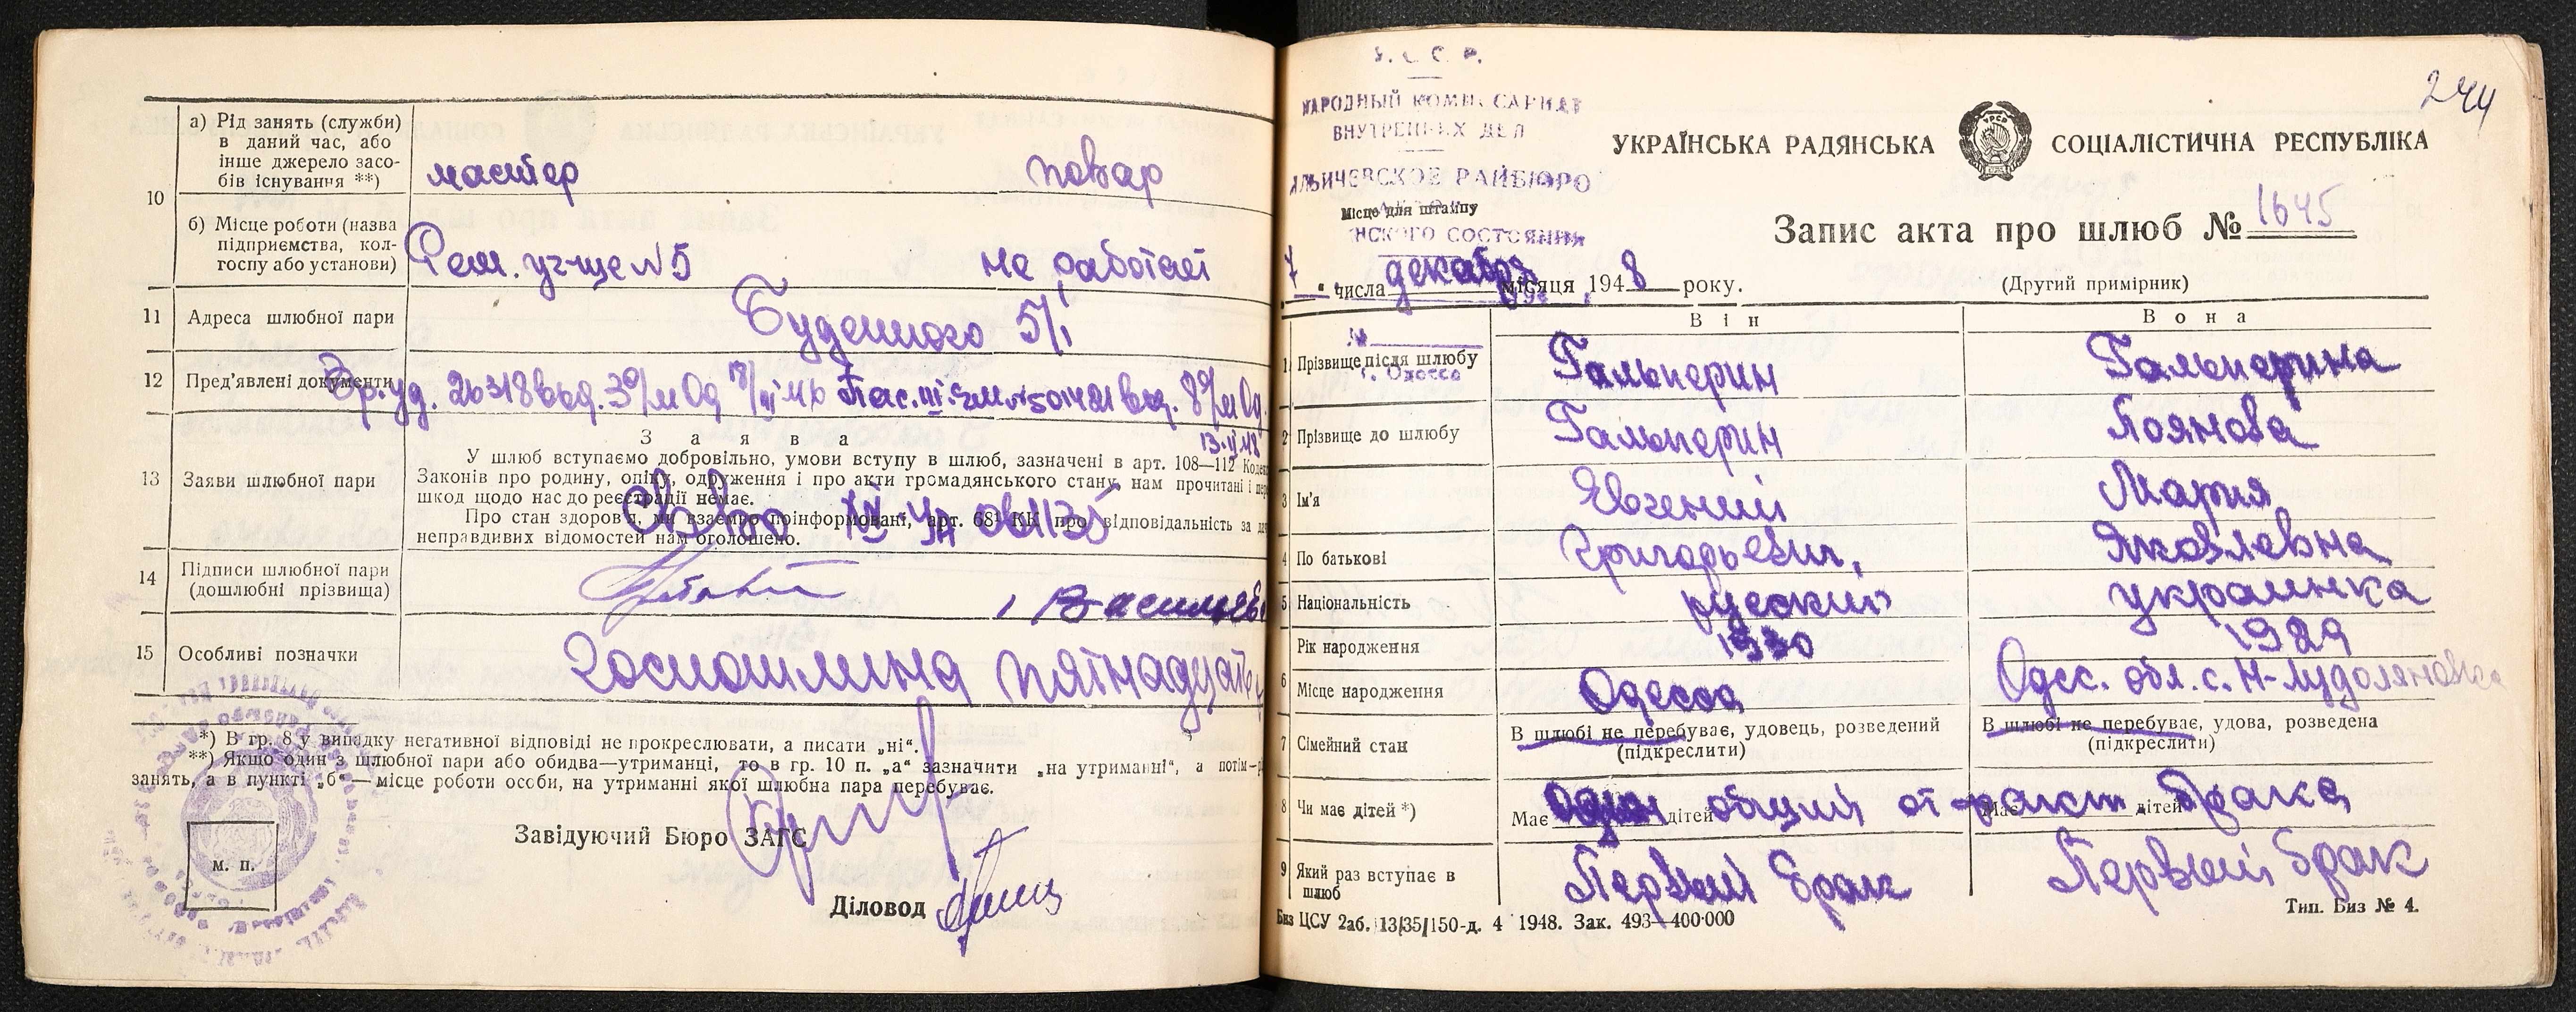 а) Рід занять (служби)
в даний час, або
інше джерело засо-
бів існування **)
мастер
повар
10
б) Місце роботи (назва
підприємства, кол-
госпу або установи)
Рем. уч-ще №5
не работает
11 Адреса шлюбної пари
Буденного 5/1
12 Пред'явлені документи
13 Заяви шлюбної пари
З а я в а
У шлюб вступаємо добровільно, умови вступу в шлюб, зазначені в арт. 108—112
Законів про родину, опіку, одруження і про акти громадянського стану, нам прочитані і
шкод щодо нас до реєстрації немає.
Про стан здоров'я, ми взаємно поінформовані, арт. 68¹ КК про відповідальність за
неправдивих відомостей нам оголошено.
14 Підписи шлюбної пари
(дошлюбні прізвища)
15 Особливі позначки
госпошлина пятнадцать
*) В гр. 8 у випадку негативної відповіді не прокреслювати, а писати „ні“.
**) Якщо один з шлюбної пари або обидва—утриманці, то в гр. 10 п. „а“ зазначити „на утриманні“, а потім—
занять, а в пункті „б“—місце роботи особи, на утриманні якої шлюбна пара перебуває.
Завідуючий Бюро ЗАГС
м. п.
Діловод
У. С. С. Р.
НАРОДНЫЙ КОМИССАРИАТ
ВНУТРЕННИХ ДЕЛ
ИЛЬИЧЕВСКОЕ РАЙБЮРО
Місце для штампу
г. Одесса
244
УКРАЇНСЬКА РАДЯНСЬКА СОЦІАЛІСТИЧНА РЕСПУБЛІКА
Запис акта про шлюб № 1645
(Другий примірник)
7 “ числа декабря місяця 1948 року.
Він Вона
1 Прізвище після шлюбу Гальперин Гальперина
2 Прізвище до шлюбу Гальперин Лоянова
3 Ім'я Евгений Мария
4 По батькові Григорьевич, Яковлевна
5 Національність русский украинка
Рік народження 1930 1929
6 Місце народження Одесса Одес. обл. с.
7 Сімейний стан
В шлюбі не перебуває, удовець, розведений
(підкреслити)
В шлюбі не перебуває, удова, розведена
(підкреслити)
8 Чи має дітей *) Має один дітей общий от факт брака Має дітей
9 Який раз вступає в
шлюб
Первый брак Первый брак
Биз ЦСУ 2аб. 13/35/150-д. 4 1948. Зак. 493—400·000
Тип. Биз № 4.